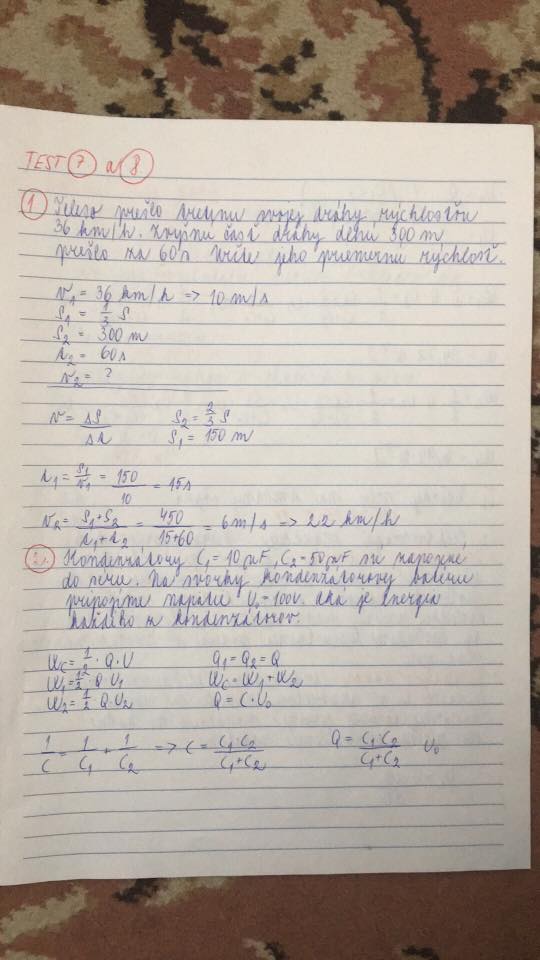 TEST 7 a 8
1. Teleso prešlo tretinu svojej dráhy rýchlosťou
36 km/h. Zvyšnú časť dráhy dlhú 300 m
prešlo za 60 s. Určte jeho priemernú rýchlosť.
v₁ = 36 km/h => 10 m/s
S₁ = 1/3 S
S₂ = 300 m
t₂ = 60 s
v₂ = ?
v = ΔS/Δt S₂ = 2/3 S
S₁ = 150 m
t₁ = S₁/v₁ = 150/10 = 15 s
v₂ = S₁+S₂/t₁+t₂ = 450/15+60 = 6 m/s => 22 km/h
2. Kondenzátory C₁ = 10 μF, C₂ = 50 μF sú zapojené
do série. Na svorky kondenzátorovej batérie
pripojíme napätie U₀ = 100V. Aká je energia
každého z kondenzátorov.
Wc = 1/2 · Q · U Q₁ = Q₂ = Q
W₁ = 1/2 Q U₁ Wc = W₁ + W₂
W₂ = 1/2 Q U₂ Q = C · U₀
1/C = 1/C₁ + 1/C₂ => C = C₁·C₂/C₁+C₂ Q = C₁·C₂/C₁+C₂ U₀